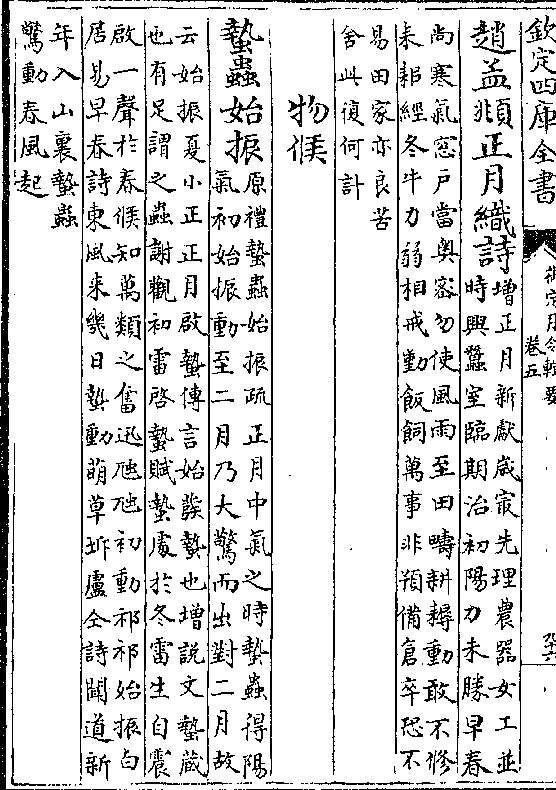 欽定四庫全書
御定月令輯要
卷五
趙孟頫正月織詩
增正月新獻歲最先理農器女工並
時興蠶室臨期治初陽力未勝早春
尚寒氣窓戸當奥密勿使風雨至田疇耕耨動敢不修
耒耜經冬牛力弱相戒勤飯飼萬事非預備倉卒恐不
易田家亦良苦
舍此復何計
物候
蟄蟲始振
原禮蟄蟲始振疏正月中氣之時蟄蟲得陽
氣初始振動至二月乃大驚而出對二月故
云始振夏小正正月啟蟄傳言始發蟄也增説文蟄藏
也有足謂之蟲謝觀初雷啓蟄賦蟄處於冬雷生自震
啟一聲於春候知萬類之奮迅虺虺初動祁祁始振白
居易早春詩東風來幾日蟄動萌草坼盧仝詩聞道新
年入山裏蟄蟲
驚動春風起